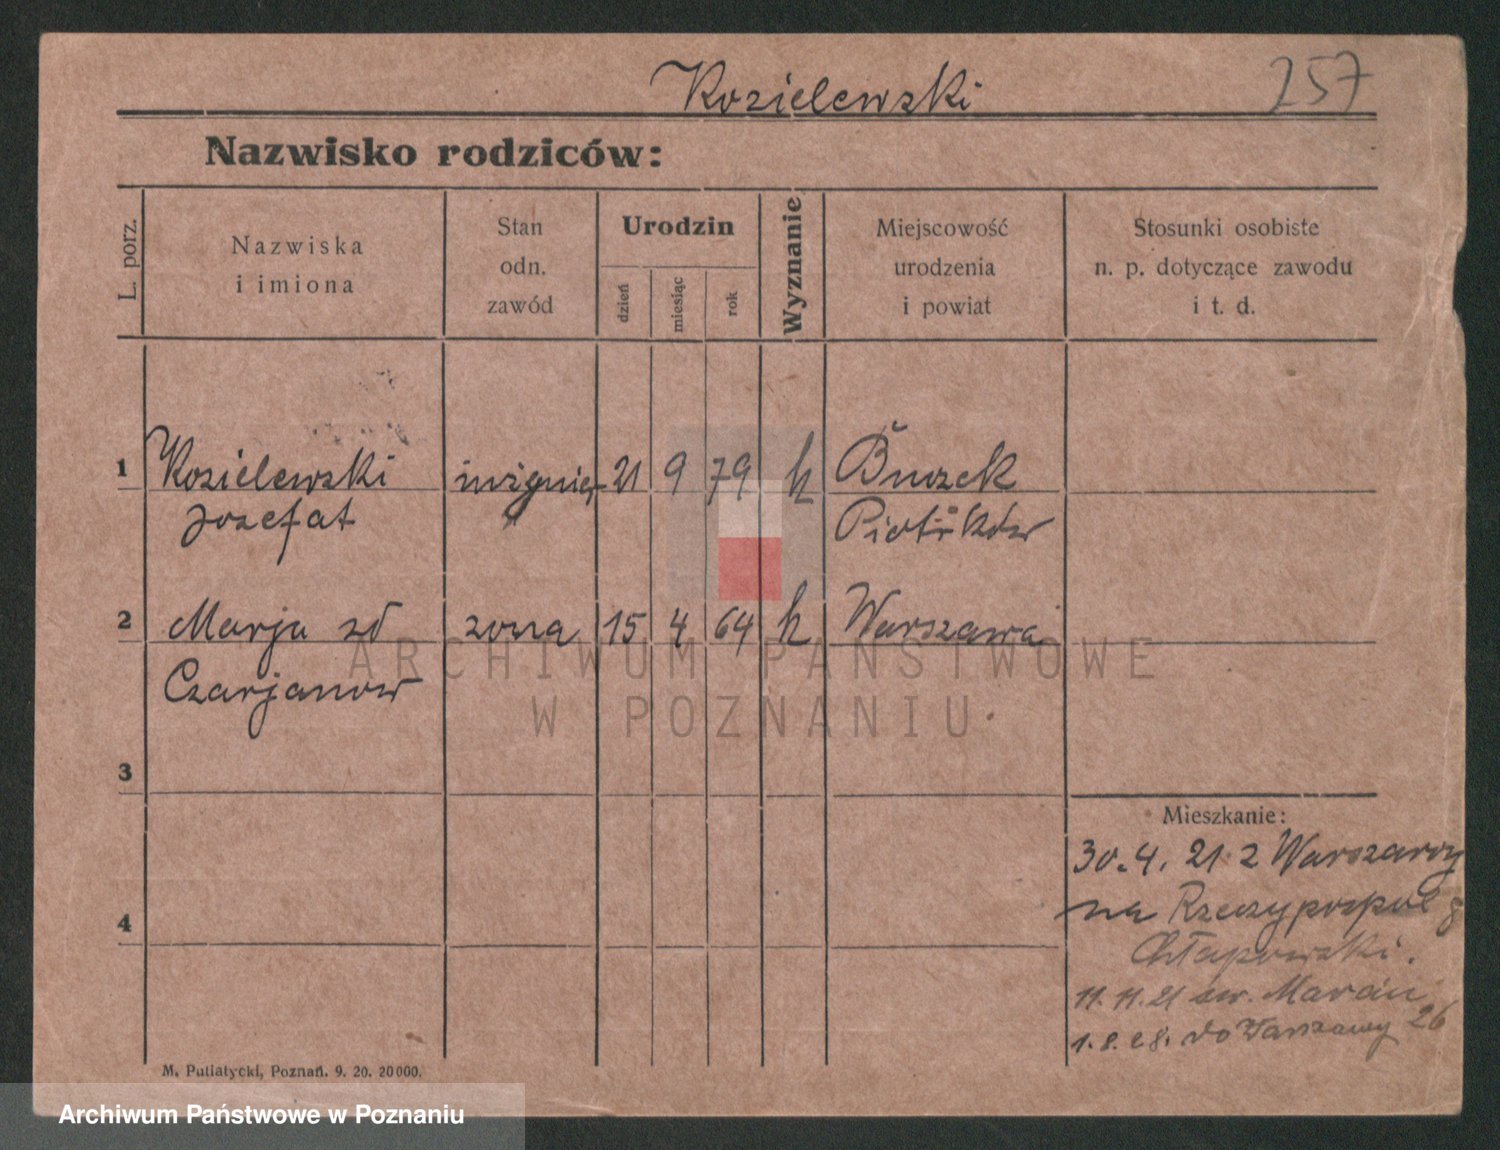 Kozielewski 257
Nazwisko rodziców:
L. porz.
Nazwiska
i imiona
Stan
odn.
zawód
Urodzin
dzień
miesiąc
rok
Wyznanie
Miejscowość
urodzenia
i powiat
Stosunki osobiste
n. p. dotyczące zawodu
i t. d.
1 Kozielewski 21 9 79 k
Jozefat Piotrków
2 Marja zd żona 15 4 64 k Warszawa
Czarjanow
3
Mieszkanie:
30.4. 21 z Warszawy
na Rzeczypospol 8
4
Chłapowski.
11. 11. 21 św. Marcin 26
1. 8. 28. do Warszawy
M. Putiatycki, Poznań. 9. 20. 20000.
ARCHIWUM PAŃSTWOWE
W POZNANIU
Archiwum Państwowe w Poznaniu